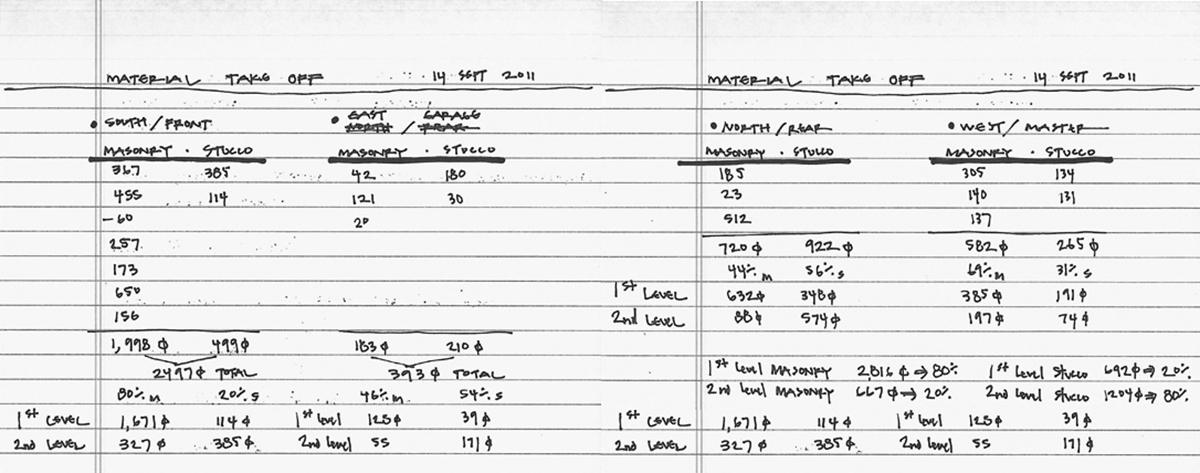 MATERIAL TAKE OFF 14 SEPT 2011
• SOUTH / FRONT
MASONRY · STUCCO
367 385
455 114
-60
257
173
650
156
1,998 ⌀ 499 ⌀
2497 ⌀ TOTAL
80% M 20% S
1st LEVEL 1,671 ⌀ 114 ⌀
2nd LEVEL 327 ⌀ 385 ⌀
• EAST NORTH / GARAGE REAR
MASONRY · STUCCO
42 180
121 30
20
183 ⌀ 210 ⌀
393 ⌀ TOTAL
46% M 54% S
1st level 128 ⌀ 39 ⌀
2nd level 55 171 ⌀
MATERIAL TAKE OFF 14 SEPT 2011
• NORTH / REAR
MASONRY · STUCCO
185
23
512
720 ⌀ 922 ⌀
44% M 56% S
1st LEVEL 632 ⌀ 348 ⌀
2nd LEVEL 88 ⌀ 574 ⌀
• WEST / MASTER
MASONRY · STUCCO
305 134
140 131
137
582 ⌀ 265 ⌀
69% M 31% S
385 ⌀ 191 ⌀
197 ⌀ 74 ⌀
1st level MASONRY 2816 ⌀ ⇒ 80% 1st level Stucco 692 ⌀ ⇒ 20%
2nd level MASONRY 667 ⌀ ⇒ 20% 2nd level Stucco 1204 ⌀ ⇒ 80%
1st LEVEL 1,671 ⌀ 114 ⌀ 1st level 128 ⌀ 39 ⌀
2nd LEVEL 327 ⌀ 385 ⌀ 2nd level 55 171 ⌀